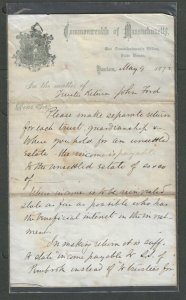 Commonwealth of Massachusetts,
Tax Commissioner's Office,
State House,
Boston, May 9 187
In the matter of
Trustee Return John Ford
Please make separate return
for each trust guardianship &
When you hold for an unsettled
estate the income is
to the unsettled estate of
of
When income is to be
state as far as possible who has
the beneficial interest in the
ment.
In making return it is suff.
to state income payable to
instead of to trustees for